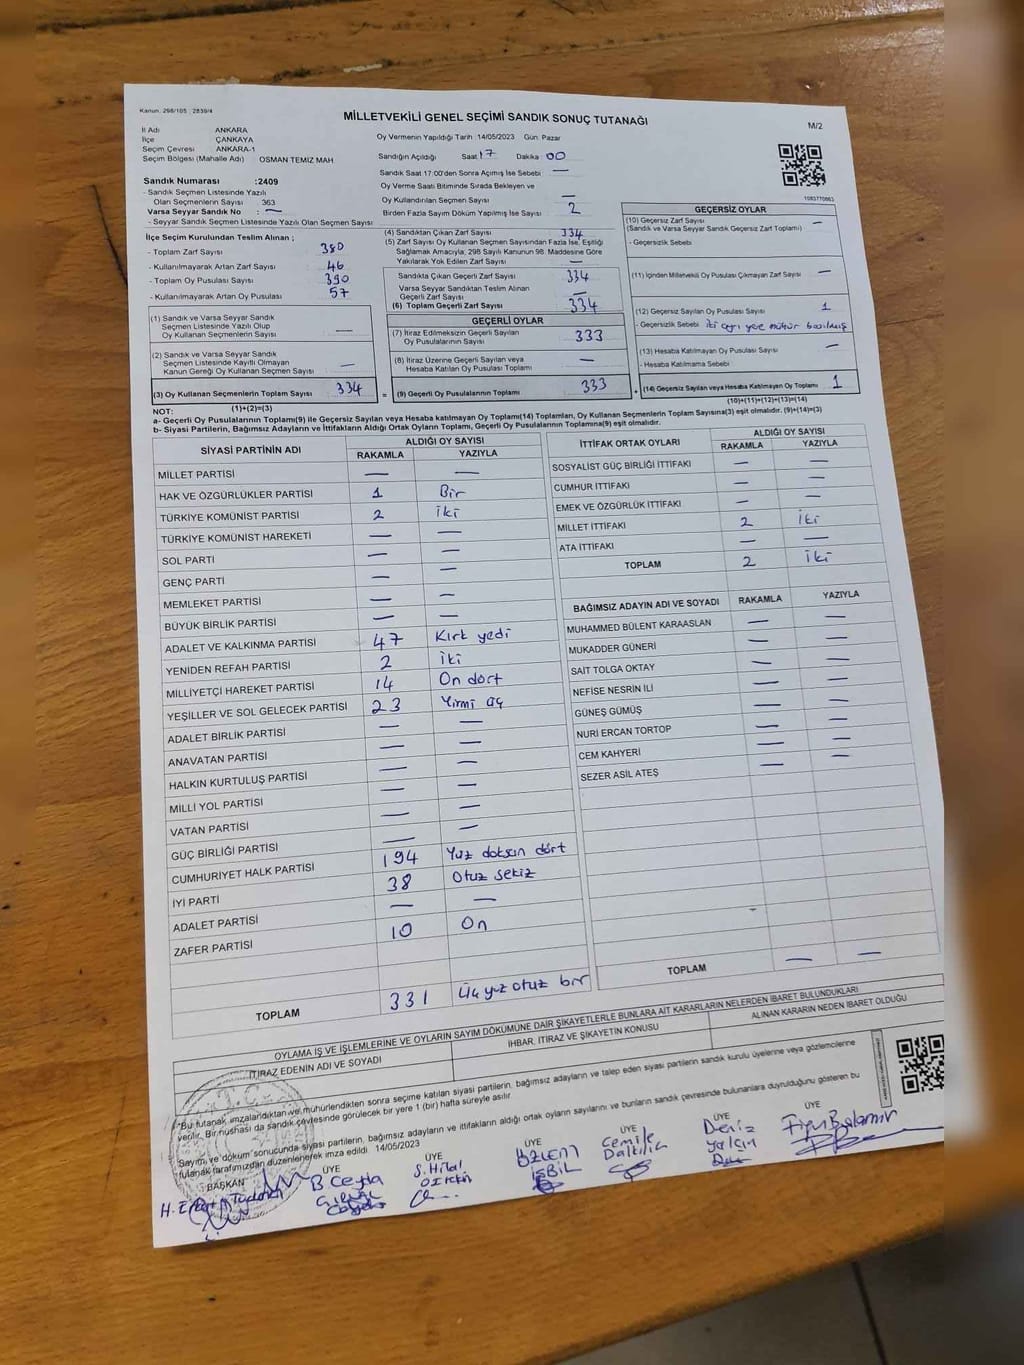 Kanun. 298/105 , 2839/4
MİLLETVEKİLİ GENEL SEÇİMİ SANDIK SONUÇ TUTANAĞI
M/2
İl Adı ANKARA
İlçe ÇANKAYA
Seçim Çevresi ANKARA-1
Seçim Bölgesi (Mahalle Adı) OSMAN TEMİZ MAH.
Oy Vermenin Yapıldığı Tarih 14/05/2023 Gün: Pazar
Sandığın Açıldığı Saat 17 Dakika 00
Sandık Saat 17:00'den Sonra Açmış İse Sebebi —
Oy Verme Saati Bitiminde Sırada Bekleyen ve
Oy Kullandırılan Seçmen Sayısı —
Birden Fazla Sayım Döküm Yapılmış İse Sayısı 2
1083770863
Sandık Numarası :2409
- Sandık Seçmen Listesinde Yazılı
Olan Seçmenlerin Sayısı : 363
Varsa Seyyar Sandık No : —
- Seyyar Sandık Seçmen Listesinde Yazılı Olan Seçmen Sayısı
İlçe Seçim Kurulundan Teslim Alınan ;
- Toplam Zarf Sayısı 380
- Kullanılmayarak Artan Zarf Sayısı 46
- Toplam Oy Pusulası Sayısı 390
- Kullanılmayarak Artan Oy Pusulası 57
(1) Sandık ve Varsa Seyyar Sandık
Seçmen Listesinde Yazılı Olup
Oy Kullanan Seçmenlerin Sayısı —
(2) Sandık ve Varsa Seyyar Sandık
Seçmen Listesinde Kayıtlı Olmayan
Kanun Gereği Oy Kullanan Seçmen Sayısı —
(3) Oy Kullanan Seçmenlerin Toplam Sayısı 334
(1)+(2)=(3)
(4) Sandıktan Çıkan Zarf Sayısı 334
(5) Zarf Sayısı Oy Kullanan Seçmen Sayısından Fazla İse, Eşitliği
Sağlamak Amacıyla; 298 Sayılı Kanunun 98. Maddesine Göre
Yakılarak Yok Edilen Zarf Sayısı —
Sandıkta Çıkan Geçerli Zarf Sayısı 334
Varsa Seyyar Sandıktan Teslim Alınan
Geçerli Zarf Sayısı —
(6) Toplam Geçerli Zarf Sayısı 334
GEÇERLİ OYLAR
(7) İtiraz Edilmeksizin Geçerli Sayılan
Oy Pusulalarının Sayısı 333
(8) İtiraz Üzerine Geçerli Sayılan veya
Hesaba Katılan Oy Pusulası Toplamı —
= (9) Geçerli Oy Pusulalarının Toplamı 333
GEÇERSİZ OYLAR
(10) Geçersiz Zarf Sayısı —
(Sandık ve Varsa Seyyar Sandık Geçersiz Zarf Toplamı)
- Geçersizlik Sebebi
(11) İçinden Milletvekili Oy Pusulası Çıkmayan Zarf Sayısı —
(12) Geçersiz Sayılan Oy Pusulası Sayısı 1
- Geçersizlik Sebebi iki ayrı yere mühür basılmış
(13) Hesaba Katılmayan Oy Pusulası Sayısı —
- Hesaba Katılmama Sebebi
+ (14) Geçersiz Sayılan veya Hesaba Katılmayan Oy Toplamı 1
(10)+(11)+(12)+(13)=(14)
NOT:
a- Geçerli Oy Pusulalarının Toplamı(9) ile Geçersiz Sayılan veya Hesaba katılmayan Oy Toplamı(14) Toplamları, Oy Kullanan Seçmenlerin Toplam Sayısına(3) eşit olmalıdır. (9)+(14)=(3)
b- Siyasi Partilerin, Bağımsız Adayların ve İttifakların Aldığı Ortak Oyların Toplamı, Geçerli Oy Pusulalarının Toplamına(9) eşit olmalıdır.
SİYASİ PARTİNİN ADI ALDIĞI OY SAYISI
RAKAMLA YAZIYLA
MİLLET PARTİSİ — —
HAK VE ÖZGÜRLÜKLER PARTİSİ 1 Bir
TÜRKİYE KOMÜNİST PARTİSİ 2 iki
TÜRKİYE KOMÜNİST HAREKETİ — —
SOL PARTİ — —
GENÇ PARTİ — —
MEMLEKET PARTİSİ — —
BÜYÜK BİRLİK PARTİSİ — —
ADALET VE KALKINMA PARTİSİ 47 Kırk yedi
YENİDEN REFAH PARTİSİ 2 iki
MİLLİYETÇİ HAREKET PARTİSİ 14 On dört
YEŞİLLER VE SOL GELECEK PARTİSİ 23 Yirmi üç
ADALET BİRLİK PARTİSİ — —
ANAVATAN PARTİSİ — —
HALKIN KURTULUŞ PARTİSİ — —
MİLLİ YOL PARTİSİ — —
VATAN PARTİSİ — —
GÜÇ BİRLİĞİ PARTİSİ — —
CUMHURİYET HALK PARTİSİ 194 Yüz doksan dört
İYİ PARTİ 38 Otuz sekiz
ADALET PARTİSİ — —
ZAFER PARTİSİ 10 On
TOPLAM 331 Üç yüz otuz bir
İTTİFAK ORTAK OYLARI ALDIĞI OY SAYISI
RAKAMLA YAZIYLA
SOSYALİST GÜÇ BİRLİĞİ İTTİFAKI — —
CUMHUR İTTİFAKI — —
EMEK VE ÖZGÜRLÜK İTTİFAKI — —
MİLLET İTTİFAKI 2 iki
ATA İTTİFAKI — —
TOPLAM 2 iki
BAĞIMSIZ ADAYIN ADI VE SOYADI RAKAMLA YAZIYLA
MUHAMMED BÜLENT KARAASLAN — —
MUKADDER GÜNERİ — —
SAİT TOLGA OKTAY — —
NEFİSE NESRİN İLİ — —
GÜNEŞ GÜMÜŞ — —
NURİ ERCAN TORTOP — —
CEM KAHYERİ — —
SEZER ASİL ATEŞ — —
TOPLAM — —
OYLAMA İŞ VE İŞLEMLERİNE VE OYLARIN SAYIM DÖKÜMÜNE DAİR ŞİKAYETLERLE BUNLARA AİT KARARLARIN NELERDEN İBARET BULUNDUKLARI
İTİRAZ EDENİN ADI VE SOYADI İHBAR, İTİRAZ VE ŞİKAYETİN KONUSU ALINAN KARARIN NEDEN İBARET OLDUĞU
"Bu tutanak imzalandıktan ve mühürlendikten sonra seçime katılan siyasi partilerin, bağımsız adayların ve talep eden siyasi partilerin sandık kurulu üyelerine veya gözlemcilerine
verilir. Bir nüshası da sandık çevresinde görülecek bir yere 1 (bir) hafta süreyle asılır.
Sayım ve döküm sonucunda siyasi partilerin, bağımsız adayların ve ittifakların aldığı ortak oyların sayılarını ve bunların sandık çevresinde bulunanlara duyrulduğunu gösteren bu
tutanak tarafımızdan düzenlenerek imza edildi. 14/05/2023
BAŞKAN ÜYE ÜYE ÜYE ÜYE ÜYE ÜYE
B Ceyda
S. Hilal
ÖZLEM
Cemile
Deniz
Yalçın